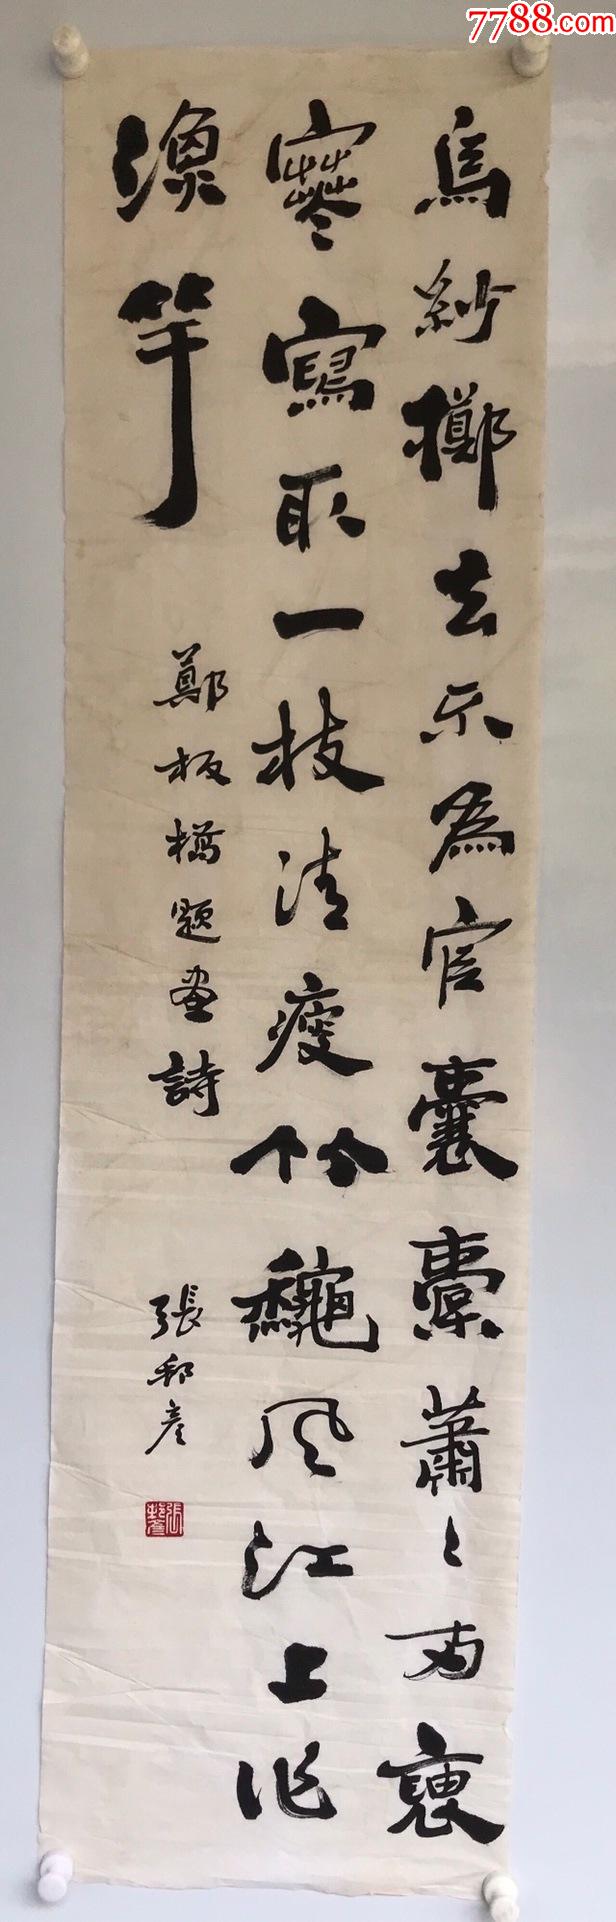 7788.com
烏紗擲去不為官囊橐蕭〻兩褎
寒寫取一枝清瘦竹龝風江上作
漁竿
鄭板橋題畫詩 張邦彥